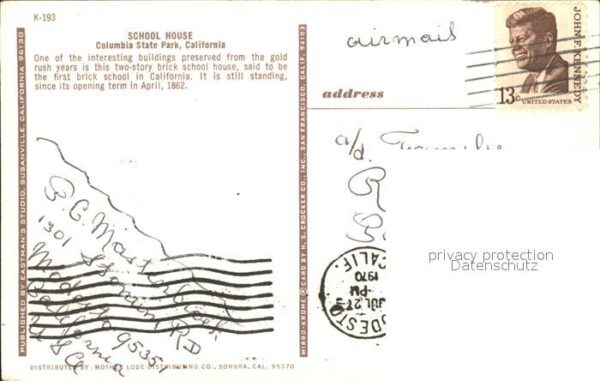 K-193
SCHOOL HOUSE
Columbia State Park, California
One of the interesting buildings preserved from the gold
rush years is this two-story brick school house, said to be
the first brick school in California. It is still standing,
since its opening term in April, 1862.
PUBLISHED BY EASTMAN'S STUDIO, SUSANVILLE, CALIFORNIA 96130
MIRRO-KROME ® CARD BY H. S. CROCKER CO., INC., SAN FRANCISCO, CALIF. 94103
airmail
JOHN F. KENNEDY
13c
UNITED STATES
address
a/d.
1301
Modesto 95351
California
USA
CALIF.
1970
JUL 27
PM
privacy protection
Datenschutz
DISTRIBUTED BY: MOTHER LODE DISTRIBUTING CO., SONORA, CAL. 95370